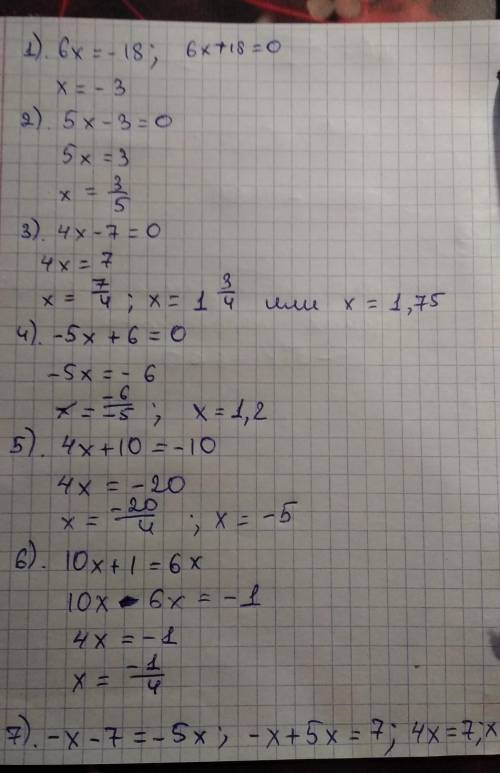 1). 6x = -18; 6x+18=0
x = -3
2). 5x - 3 = 0
5x = 3
x = 3/5
3). 4x - 7 = 0
4x = 7
x = 7/4; x = 1 3/4 или x = 1,75
4). -5x + 6 = 0
-5x = - 6
x = -6/-5; x = 1,2
5). 4x + 10 = -10
4x = -20
x = -20/4; x = -5
6). 10x + 1 = 6x
10x - 6x = -1
4x = -1
x = -1/4
7). -x - 7 = -5x; -x + 5x = 7; 4x = 7; x